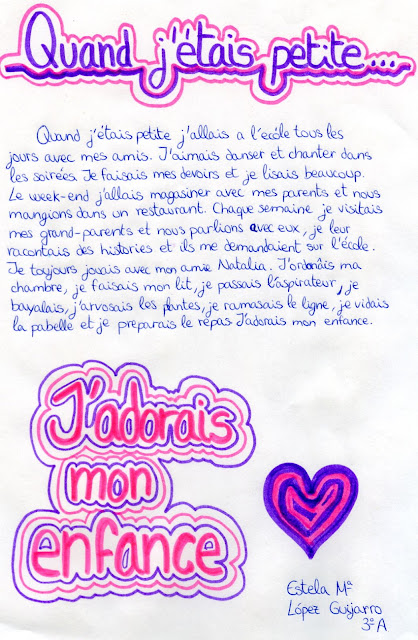 Quand j'étais petite...
Quand j'étais petite j'allais a l'école tous les
jours avec mes amis. J'aimais danser et chanter dans
les soirées. Je faisais mes devoirs et je lisais beaucoup.
Le week-end j'allais magasiner avec mes parents et nous
mangions dans un restaurant. Chaque semaine je visitais
mes grand-parents et nous parlions avec eux, je leur
racontais des histories et ils me demandaient sur l'école.
Je toujours jouais avec mon amie Natalia. J'ordonáis ma
chambre, je faisais mon lit, je passais l'aspirateur, je
bayalais, j'arvosais les plantes, je ramasais le ligne, je vidais
la pabelle et je preparais le repas J'adorais mon enfance.
J'adorais
mon
enfance
Estela Mª
López Guijarro
3ºA